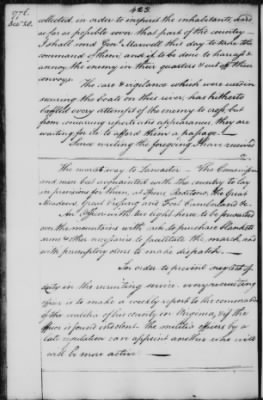 422
1776.
Dec. 20.
collected in order to inspirit the inhabitants, and
as far as possible cover that part of the country —
I shall send Genl. Maxwell this day to take the
command of them; and if to be done to harass &
annoy the enemy in their quarters & cut off their
convoys.
The care & vigilance which were used in
securing the boats on this river, has hitherto
baffled every attempt of the enemy to cross, but
from concurring reports and appearances, they are
waiting for ice to afford them a passage.
Since writing the foregoing I have received
a
The nearest way to Lancaster — The Commissary
and men best acquainted with the country to lay
in provisions for them, at
Meadows, Great Crossing and Fort Cumberland &c.
An Officer with
on the mountains with cash to purchase blankets
arms & other necessaries to facilitate the march, and
with peremptory orders to make dispatch. —
In order to prevent neglect of
duty in the recruiting service every recruiting
officer is to make a weekly report to the commander
of the militia of his county in Virginia, & if the
officer is found indolent the militia officers by a
late regulation can appoint another who will
and be more active —